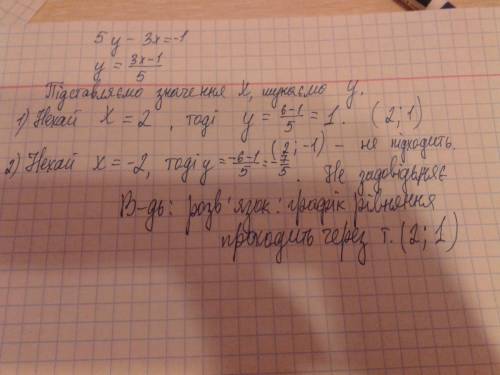 5y - 3x = -1
y = \frac{3x-1}{5}
Підставляємо значення x, шукаємо y.
1) Нехай x = 2, тоді y = \frac{6-1}{5} = 1. (2; 1)
(2; -1) - не підходить.
2) Нехай x = -2, тоді y = \frac{-6-1}{5} = -\frac{7}{5}. Не задовільняє
В-дь: розв'язок: графік рівняння
проходить через т. (2; 1)